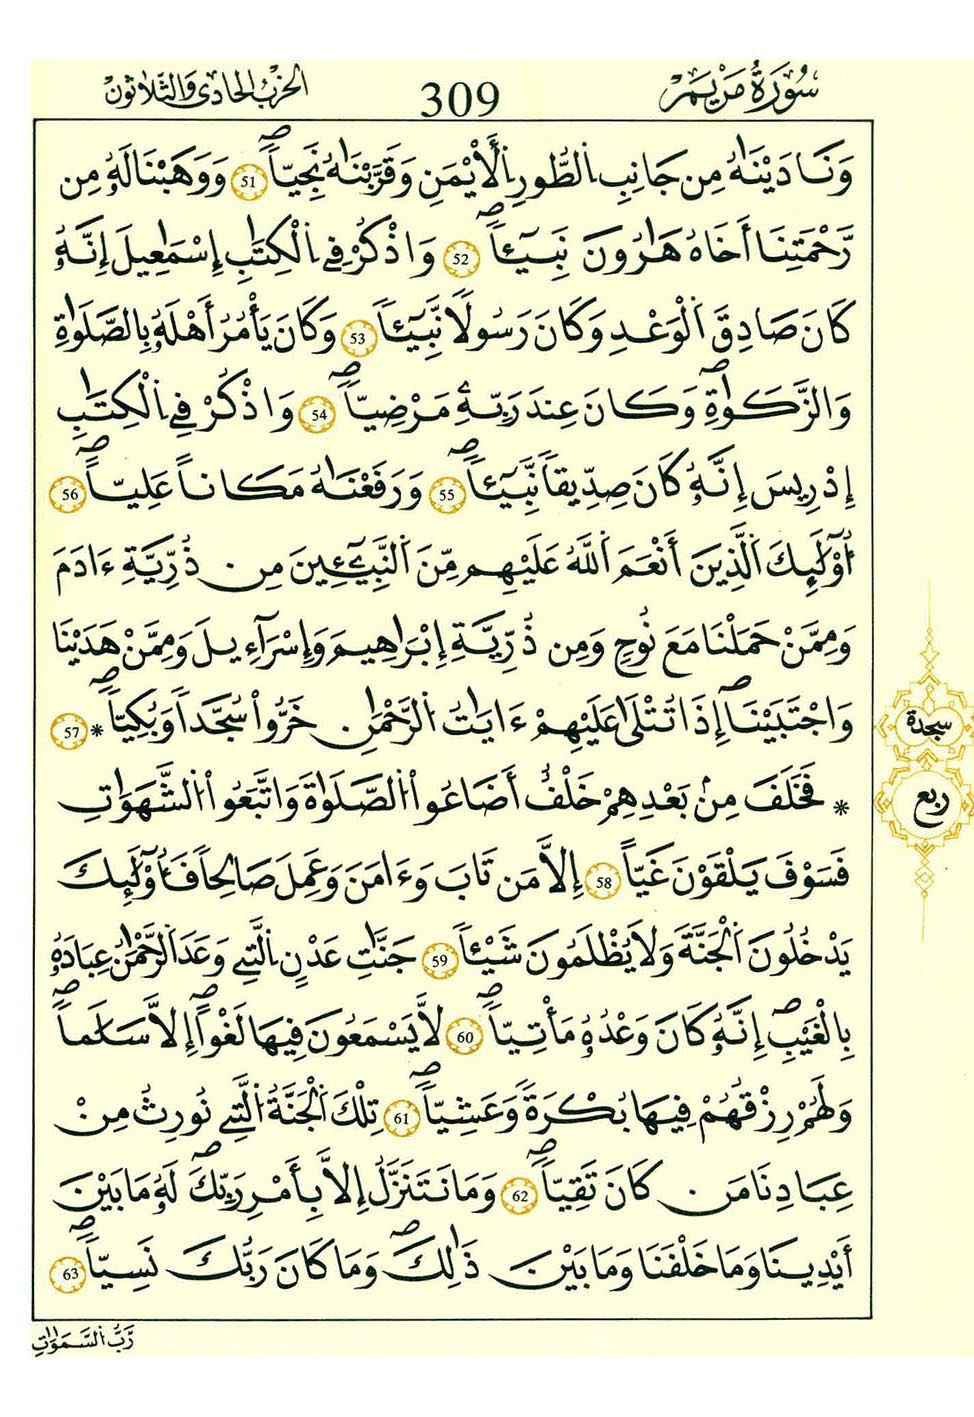 سُورَةُ مَرْيَمَ 309 الحِزْبُ الحَادِى وَالثَّلَاثُونَ
وَنَادَيْنَٰهُ مِن جَانِبِ اِ۬لطُّورِ اِ۬لْأَيْمَنِ وَقَرَّبْنَٰهُ نَجِيّاًۖ 51 وَوَهَبْنَا لَهُۥ مِن
رَّحْمَتِنَا أَخَاهُ هَٰرُونَ نَبِيٓـٔاًۖ 52 وَاذْكُرْ فِے اِ۬لْكِتَٰبِ إِسْمَٰعِيلَ إِنَّهُۥ
كَانَ صَادِقَ اَ۬لْوَعْدِ وَكَانَ رَسُولاً نَّبِيٓـٔاً 53 وَكَانَ يَأْمُرُ أَهْلَهُۥ بِالصَّلَوٰةِ
وَالزَّكَوٰةِۖ وَكَانَ عِندَ رَبِّهِۦ مَرْضِيّاًۖ 54 وَاذْكُرْ فِے اِ۬لْكِتَٰبِ
إِدْرِيسَ إِنَّهُۥ كَانَ صِدِّيقاً نَّبِيٓـٔاًۖ 55 وَرَفَعْنَٰهُ مَكَاناً عَلِيّاًۖ 56
اُ۟وْلَٰٓئِكَ اَ۬لذِينَ أَنْعَمَ اَ۬للَّهُ عَلَيْهِم مِّنَ اَ۬لنَّبِيٓـِٕينَ مِن ذُرِّيَّةِ ءَادَمَ
وَمِمَّنْ حَمَلْنَا مَعَ نُوحٍ وَمِن ذُرِّيَّةِ إِبْرَٰهِيمَ وَإِسْرَآءِيلَ وَمِمَّنْ هَدَيْنَا
وَاجْتَبَيْنَاۖ إِذَا تُتْلَىٰ عَلَيْهِمْ ءَايَٰتُ اُ۬لرَّحْمَٰنِ خَرُّواْ سُجَّداً وَبُكِيّاًۖ * 57
سجدة
* فَخَلَفَ مِنۢ بَعْدِهِمْ خَلْفٌ أَضَاعُواْ اُ۬لصَّلَوٰةَ وَاتَّبَعُواْ اُ۬لشَّهَوَٰتِ
ربع
فَسَوْفَ يَلْقَوْنَ غَيّاً 58 إِلاَّ مَن تَابَ وَءَامَنَ وَعَمِلَ صَالِحاً فَأُوْلَٰٓئِكَ
يَدْخُلُونَ اَ۬لْجَنَّةَ وَلاَ يُظْلَمُونَ شَيْـٔاً 59 جَنَّٰتِ عَدْنٍ اِ۬لتِے وَعَدَ اَ۬لرَّحْمَٰنُ عِبَادَهُۥ
بِالْغَيْبِۖ إِنَّهُۥ كَانَ وَعْدُهُۥ مَأْتِيّاًۖ 60 لاَّ يَسْمَعُونَ فِيهَا لَغْواًۖ إِلاَّ سَلَٰماًۖ
وَلَهُمْ رِزْقُهُمْ فِيهَا بُكْرَةً وَعَشِيّاًۖ 61 تِلْكَ اَ۬لْجَنَّةُ اُ۬لتِے نُورِثُ مِنْ
عِبَادِنَا مَن كَانَ تَقِيّاًۖ 62 وَمَا نَتَنَزَّلُ إِلاَّ بِأَمْرِ رَبِّكَۖ لَهُۥ مَا بَيْنَ
أَيْدِينَا وَمَا خَلْفَنَا وَمَا بَيْنَ ذَٰلِكَۖ وَمَا كَانَ رَبُّكَ نَسِيّاًۖ 63
رَّبُّ اُ۬لسَّمَٰوَٰتِ